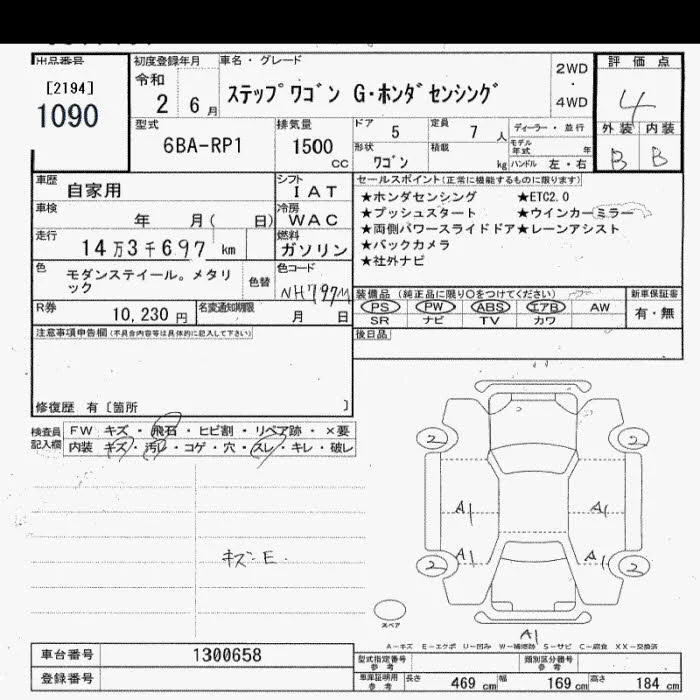 出品番号
[2194]
1090
初度登録年月
令和
2 6 月
車名・グレード
ステップワゴン G・ホンダセンシング
2WD
・
4WD
評価点
4
外装 内装
B B
型式
6BA-RP1
排気量
1500 CC
ドア 5
定員 7 人
ディーラー・並行
モデル年式 年
形状 ワゴン
積載 kg
ハンドル 左・右
車歴 自家用
シフト IAT
車検 年 月( 日)
冷房 WAC
走行 14万3千697 km
燃料 ガソリン
色 モダンステイール。メタリック
色替
色コード NH797M
R券 10,230 円
名変通知期限 月 日
セールスポイント(正常に機能するものに限ります)
★ホンダセンシング ★ETC2.0
★プッシュスタート ★ウインカーミラー
★両側パワースライドドア★レーンアシスト
★バックカメラ
★社外ナビ
装備品 (純正品に限り○をつけてください)
新車保証書
PS PW ABS エアB AW
有・無
SR ナビ TV カワ
後日品
注意事項申告欄(不具合内容等は具体的に記入して下さい)
修復歴 有〔箇所 〕
検査員記入欄
FW キズ・飛石・ヒビ割・リペア跡・×要
内装 キズ・汚レ・コゲ・穴・スレ・キレ・破レ
キズ・E.
2 2
A1 A1
A1 A1
2 2
スペア
A1
A-キズ E-エクボ U-凹み W-補修跡 S-サビ C-腐食 XX-交換済
車台番号 1300658
登録番号
型式指定番号参考
類別区分番号参考
車庫証明用参考
長さ 469 cm 幅 169 cm 高さ 184 cm